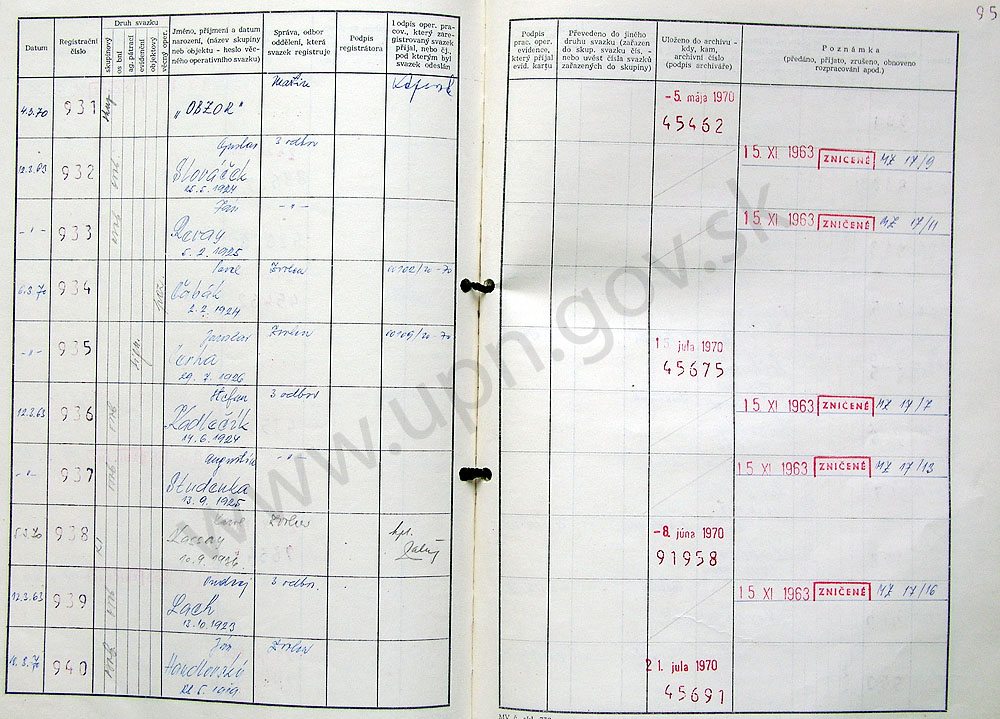 95
Datum
Registrační číslo
Druh svazku
skupinový
osobní
ag. pátrací
evidenční
objektový
věcný oper.
Jméno, příjmení a datum
narození, (název skupiny
neb objektu - heslo věc-
ného operativního svazku)
Správa, odbor
oddělení, která
svazek registruje
Podpis
registrátora
Podpis oper. pra-
cov., který zare-
gistrovaný svazek
přijal, nebo čj.,
pod kterým byl
svazek odeslán
Podpis
prac. oper.
evidence,
který přijal
evid. kartu
Převedeno do jiného
druhu svazku (zařazen
do skup. svazku čís. -
nebo uvést čísla svazků
zařazených do skupiny)
Uloženo do archivu -
kdy, kam,
archivní číslo
(podpis archiváře)
Poznámka
(předáno, přijato, zrušeno, obnoveno
rozpracování apod.)
4.3.70 931 „OBZOR" Martin
- 5. mája 1970
45462
12.3.63 932 Slováček 3 odbor
25.5.1924
15. XI 1963 ZNIČENÉ MZ 17/9
-"- 933 Ján -"-
Revay
5.2.1925
15. XI 1963 ZNIČENÉ MZ 17/11
6.3.70 934 Pavel Zvolen 00102/20-70
Čabák
2.2.1924
-"- 935 Jaroslav Zvolen 00109/20-70
Černa
29.7.1926
15. júla 1970
45675
12.3.63 936 Štefan 3 odbor
Kadlečík
14.6.1924
15. XI 1963 ZNIČENÉ MZ 17/7
-"- 937 Augustín -"-
Studenka
13.9.1925
15. XI 1963 ZNIČENÉ MZ 17/13
938 Zvolen
10.9.1926
- 8. júna 1970
91958
12.3.63 939 Ondrej 3 odbor
Lach
13.10.1923
15. XI 1963 ZNIČENÉ MZ 17/16
940 Ján Zvolen
Handlovský
22.5.1919
21. júla 1970
45691
www.upn.gov.sk